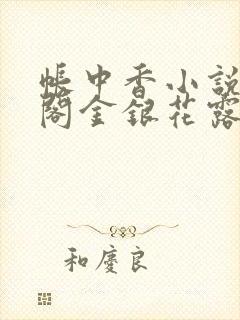 帳中香小說
閣金銀花露
和慶良